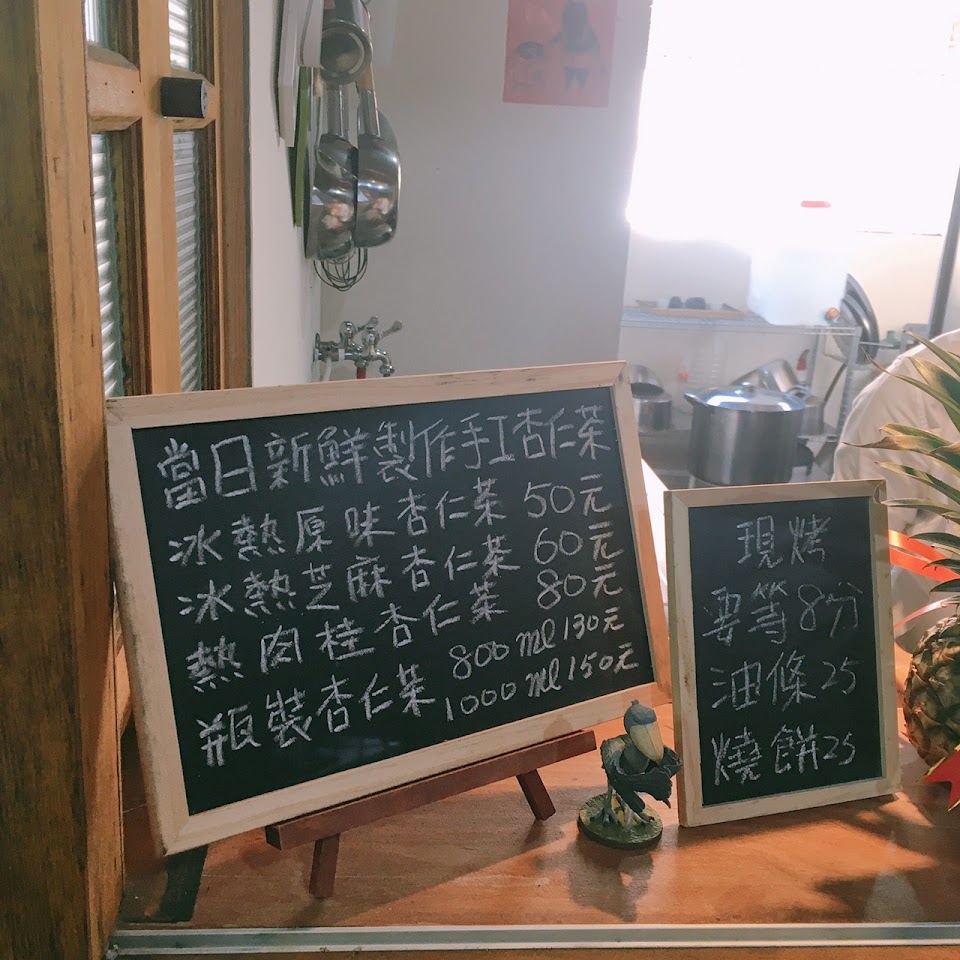 當日新鮮製作手工杏仁茶
冰熱原味杏仁茶 50元
冰熱芝麻杏仁茶 60元
熱肉桂杏仁茶 80元
瓶裝杏仁茶 800ml 130元
1000ml 150元
現烤
要等8分
油條25
燒餅25